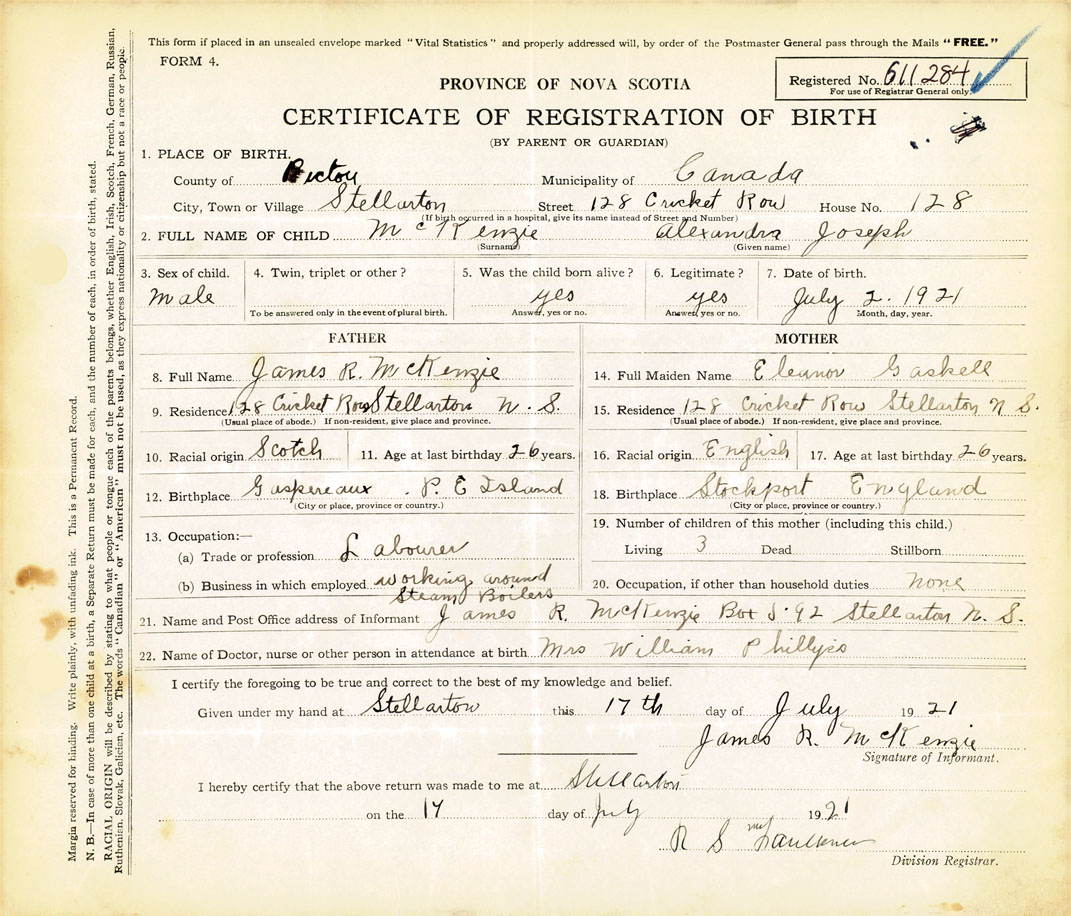 This form if placed in an unsealed envelope marked "Vital Statistics" and properly addressed will, by order of the Postmaster General pass through the Mails "FREE."
FORM 4.
Registered No. 611284
For use of Registrar General only.
PROVINCE OF NOVA SCOTIA
CERTIFICATE OF REGISTRATION OF BIRTH
(BY PARENT OR GUARDIAN)
1. PLACE OF BIRTH.
County of Pictou Municipality of Canada
City, Town or Village Stellarton Street 128 Cricket Row House No. 128
(If birth occurred in a hospital, give its name instead of Street and Number)
2. FULL NAME OF CHILD McKenzie Alexandra Joseph
(Surname) (Given name)
3. Sex of child. 4. Twin, triplet or other? 5. Was the child born alive? 6. Legitimate? 7. Date of birth.
Male yes yes July 2. 1921
To be answered only in the event of plural birth. Answer, yes or no. Answer, yes or no. Month, day, year.
FATHER MOTHER
8. Full Name James R. McKenzie 14. Full Maiden Name Eleanor Gaskell
9. Residence 128 Cricket Row Stellarton N. S. 15. Residence 128 Cricket Row Stellarton N S.
(Usual place of abode.) If non-resident, give place and province. (Usual place of abode.) If non-resident, give place and province.
10. Racial origin Scotch 11. Age at last birthday 26 years. 16. Racial origin English 17. Age at last birthday 26 years.
12. Birthplace Gaspereaux . P. E Island 18. Birthplace Stockport England
(City or place, province or country.) (City or place, province or country.)
13. Occupation:— 19. Number of children of this mother (including this child.)
(a) Trade or profession Labourer Living 3 Dead Stillborn
(b) Business in which employed working around 20. Occupation, if other than household duties none
Steam Boilers
21. Name and Post Office address of Informant James R. McKenzie Box 92 Stellarton N. S.
22. Name of Doctor, nurse or other person in attendance at birth Mrs William Phillips
I certify the foregoing to be true and correct to the best of my knowledge and belief.
Given under my hand at Stellarton this 17th day of July 1921
James R. McKenzie
Signature of Informant.
I hereby certify that the above return was made to me at Stellarton
on the 17 day of July 1921
R S Faulkner
Division Registrar.
Margin reserved for binding. Write plainly, with unfading ink. This is a Permanent Record.
N. B.—In case of more than one child at a birth, a Separate Return must be made for each, and the number of each, in order of birth, stated.
RACIAL ORIGIN will be described by stating to what people or tongue each of the parents belongs, whether English, Irish, Scotch, French, German, Russian,
Ruthenian, Slovak, Galician, etc. The words "Canadian" or "American" must not be used, as they express nationality or citizenship but not a race or people.